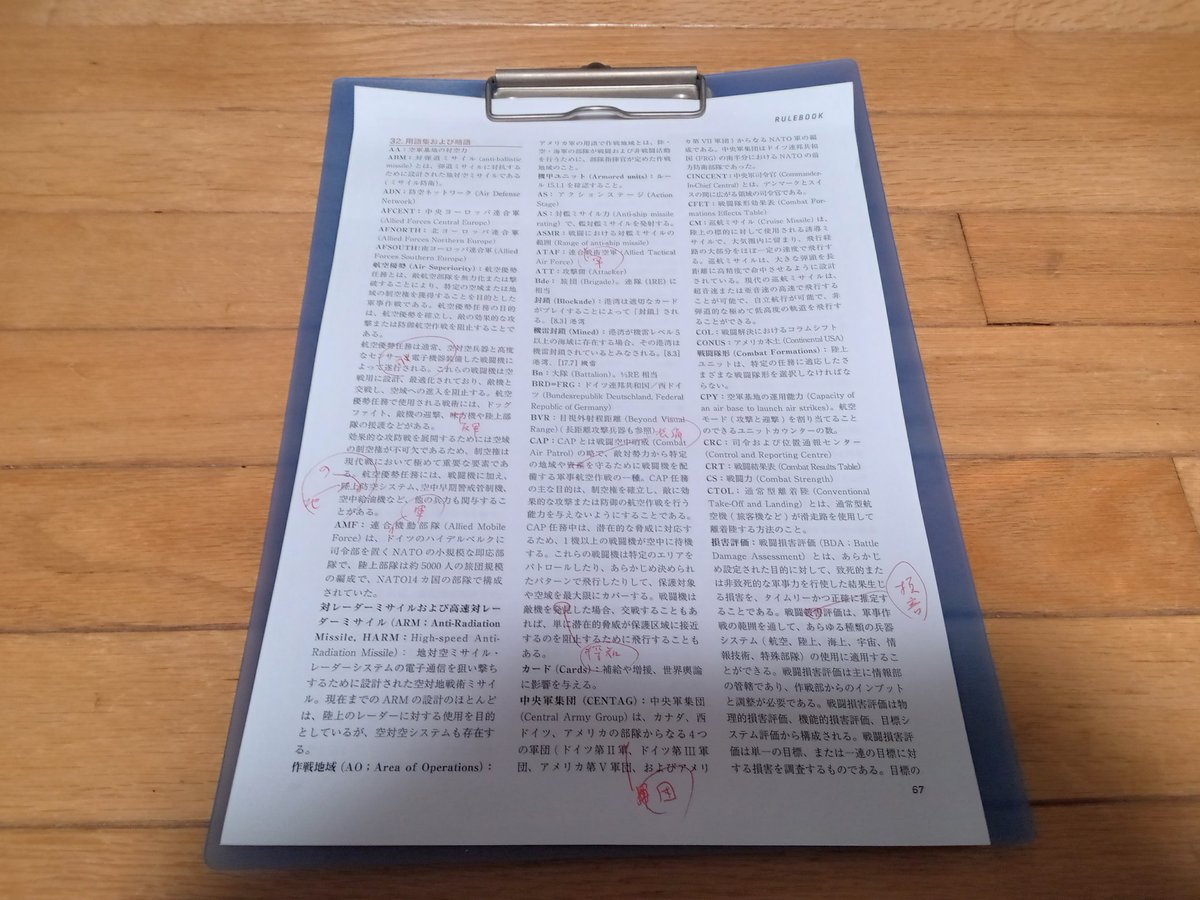 RULEBOOK
32. 用語集および略語
AA：空軍基地の対空力
ABM：対弾道ミサイル (anti-ballistic
missile) とは、弾道ミサイルに対抗する
ために設計された地対空ミサイルである
(ミサイル防衛)。
ADN：防空ネットワーク (Air Defense
Network)
AFCENT：中央ヨーロッパ連合軍
(Allied Forces Central Europe)
AFNORTH：北ヨーロッパ連合軍
(Allied Forces Northern Europe)
AFSOUTH:南ヨーロッパ連合軍 (Allied
Forces Southern Europe)
航空優勢 (Air Superiority)：航空優勢
任務とは、敵航空部隊を無力化または撃
破することにより、特定の空域または地
域の制空権を獲得することを目的とした
軍事作戦である。航空優勢任務の目的
は、航空優勢を確立し、敵の効果的な攻
撃または防御航空作戦を阻止することで
ある。
航空優勢任務は通常、空対空兵器と高度
なセンサー、電子機器装備した戦闘機に
よって遂行される。これらの戦闘機は空
戦用に設計、最適化されており、敵機と
交戦し、空域への進入を阻止する。航空
優勢任務で使用される戦術には、ドッグ
ファイト、敵機の迎撃、味方機や陸上部
隊の援護などがある。
友軍
効果的な攻防戦を展開するためには空域
の制空権が不可欠であるため、制空権は
現代戦において極めて重要な要素であ
る。航空優勢任務には、戦闘機に加え、
陸上防空システム、空中早期警戒管制機、
空中給油機など、他の兵力も関与するこ
とがある。
軍
AMF：連合機動部隊 (Allied Mobile
Force) は、ドイツのハイデルベルクに
司令部を置く NATO の小規模な即応部
隊で、陸上部隊は約 5000 人の旅団規模
の編成で、NATO14 カ国の部隊で構成
されていた。
対レーダーミサイルおよび高速対レー
ダーミサイル (ARM：Anti-Radiation
Missile, HARM：High-speed Anti-
Radiation Missile)：地対空ミサイル・
レーダーシステムの電子通信を狙い撃ち
するために設計された空対地戦術ミサイ
ル。現在までの ARM の設計のほとんど
は、陸上のレーダーに対する使用を目的
としているが、空対空システムも存在す
る。
作戦地域 (AO；Area of Operations)：
アメリカ軍の用語で作戦地域とは、陸・
空・海軍の部隊が戦闘および非戦闘活動
を行うために、部隊指揮官が定めた作戦
地域のこと。
機甲ユニット (Armored units)：ルー
ル 15.1.1 を確認すること。
AS：アクションステージ (Action
Stage)
AS：対艦ミサイル力 (Anti-ship missile
rating) で、艦対艦ミサイルを発射する。
ASMR：戦闘における対艦ミサイルの
範囲 (Range of anti-ship missile)
ATAF：連合戦術空軍 (Allied Tactical
Air Force)
ATT：攻撃側 (Attacker)
Bde：旅団 (Brigade)。連隊 (1RE) に
相当
封鎖 (Blockade)：港湾は適切なカード
がプレイすることによって [封鎖] され
る。[8.3] 港湾
機雷封鎖 (Mined)：港湾が機雷レベル 5
以上の海域に存在する場合、その港湾は
機雷封鎖されているとみなされる。[8.3]
港湾、[17.7] 機雷
Bn：大隊 (Battalion)。½RE 相当
BRD=FRG：ドイツ連邦共和国／西ドイ
ツ (Bundesrepublik Deutschland, Federal
Republic of Germany)
BVR：目視外射程距離 (Beyond Visual
Range) ( 長距離攻撃兵器も参照)
CAP：CAP とは戦闘空中哨戒 (Combat
Air Patrol) の略で、敵対勢力から特定
の地域や資産を守るために戦闘機を配
備する軍事航空作戦の一種。CAP 任務
の主な目的は、制空権を確立し、敵に効
果的な攻撃または防御の航空作戦を行う
能力を与えないようにすることである。
CAP 任務中は、潜在的な脅威に対応す
るため、1 機以上の戦闘機が空中に待機
する。これらの戦闘機は特定のエリアを
パトロールしたり、あらかじめ決められ
たパターンで飛行したりして、保護対象
や空域を最大限にカバーする。戦闘機は
敵機を発見した場合、交戦することもあ
れば、単に潜在的脅威が保護区域に接近
するのを阻止するために飛行することも
ある。
カード (Cards)：補給や増援、世界輿論
に影響を与える。
中央軍集団 (CENTAG)：中央軍集団
(Central Army Group) は、カナダ、西
ドイツ、アメリカの部隊からなる 4つ
の軍団 (ドイツ第 II 軍、ドイツ第 III 軍
団、アメリカ第 V 軍団、およびアメリ
団
カ第 VII 軍団) からなる NATO 軍の編
成である。中央軍集団はドイツ連邦共和
国 (FRG) の南半分における NATO の前
方防衛部隊であった。
CINCCENT：中央軍司令官 (Commander-
In-Chief Central) とは、デンマークとスイ
スの間に広がる領域の司令官である。
CFET：戦闘隊形効果表 (Combat For-
mations Effects Table)
CM：巡航ミサイル (Cruise Missile) は、
陸上の標的に対して使用される誘導ミ
サイルで、大気圏内に留まり、飛行経
路の大部分をほぼ一定の速度で飛行す
る。巡航ミサイルは、大きな弾頭を長
距離に高精度で命中させるように設計
されている。現代の巡航ミサイルは、
超音速または亜音速の高速で飛行する
ことが可能で、自立航行が可能で、非
弾道的な極めて低高度の軌道を飛行す
ることができる。
COL：戦闘解決におけるコラムシフト
CONUS：アメリカ本土 (Continental USA)
戦闘隊形 (Combat Formations)：陸上
ユニットは、特定の任務に適応したさ
まざまな戦闘隊形を選択しなければな
らない。
CPY：空軍基地の運用能力 (Capacity of
an air base to launch air strikes)。航空
モード (攻撃と迎撃) を割り当てること
のできるユニットカウンターの数。
CRC：司令および位置通報センター
(Control and Reporting Centre)
CRT：戦闘結果表 (Combat Results Table)
CS：戦闘力 (Combat Strength)
CTOL：通常型離着陸 (Conventional
Take-Off and Landing) とは、通常型航
空機 (旅客機など) が滑走路を使用して
離着陸する方法のこと。
損害評価：戦闘損害評価 (BDA；Battle
Damage Assessment) とは、あらかじ
め設定された目的に対して、致死的また
は非致死的な軍事力を行使した結果生じ
る損害を、タイムリーかつ正確に推定す
ることである。戦闘被害評価は、軍事作
損害
戦の範囲を通して、あらゆる種類の兵器
システム (航空、陸上、海上、宇宙、情
報技術、特殊部隊) の使用に適用するこ
とができる。戦闘損害評価は主に情報部
の管轄であり、作戦部からのインプット
と調整が必要である。戦闘損害評価は物
理的損害評価、機能的損害評価、目標シ
ステム評価から構成される。戦闘損害評
価は単一の目標、または一連の目標に対
する損害を調査するものである。目標の
67